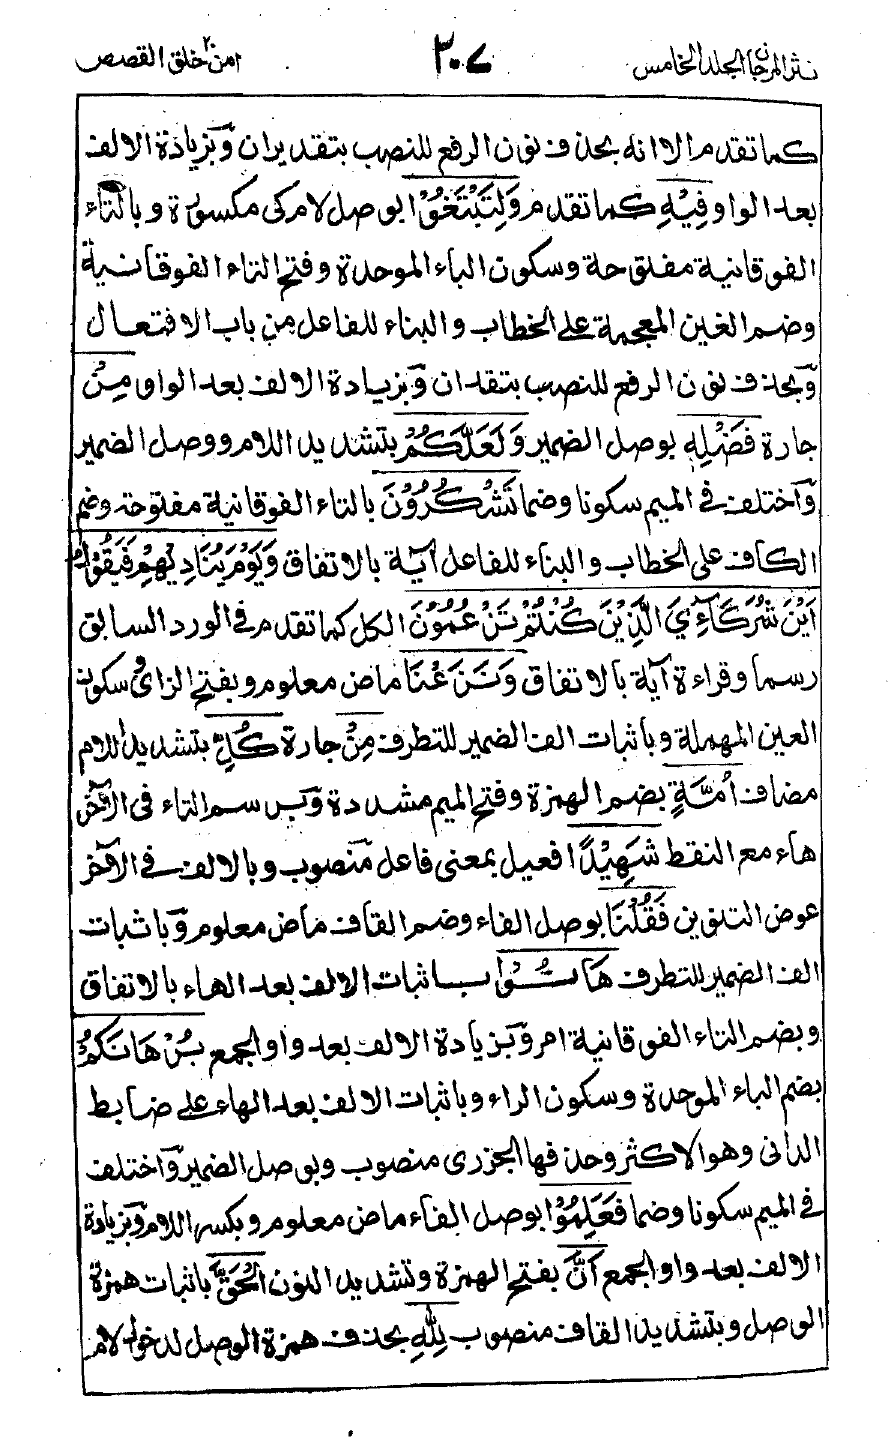 نثر المرجان الجلد الخامس ٣٠٧ امن٢٠ خلق القصص
كما تقدم الا انه بحذف نون الرفع للنصب بتقدير ان وَبزيادة الالف
بعد الواو فِيْهِ كما تقدم وَلِتَبْتَغُوْا بوصل لام كى مكسورة وبالتاء
الفوقانية مفتوحة وسكون الباء الموحدة وفتح التاء الفوقانية
وضم الغين المعجمة على الخطاب والبناء للفاعل من باب الافتعال
وَبحذف نون الرفع للنصب بتقدان وَبزيادة الالف بعد الواو مِنْ
جارة فَضْلِهٖ بوصل الضمير وَلَعَلَّكُمْ بتشديد اللام ووصل الضمير
وَاختلف فى الميم سكونا وضما تَشْكُرُوْنَ بالتاء الفوقانية مفتوحة وضم
الكاف على الخطاب والبناء للفاعل آية بالاتفاق وَيَوْمَ يُنَادِيْهِمْ فَيَقُوْلُ
اَيْنَ شُرَكَآءِيَ الَّذِيْنَ كُنْتُمْ تَزْعُمُوْنَ الكل كما تقدم فى الورد السابق
رسما وقراءة آية بالاتفاق وَنَزَعْنَا ماض معلوم وبفتح الزاى وسكون
العين المهملة وباثبات الف الضمير للتطرف مِنْ جارة كُلِّ بتشديد اللام
مضاف اُمَّةٍ بضم الهمزة وفتح الميم مشددة وَبرسم التاء فى الآخر
هاء مع النقط شَهِيْدًا فعيل بمعنى فاعل منصوب وبالالف فى الآخر
عوض التنوين فَقُلْنَا بوصل الفاء وضم القاف ماض معلوم وَباثبات
الف الضمير للتطرف هَاتُوْا باثبات الالف بعد الهاء بالاتفاق
وبضم التاء الفوقانية امر وَبزيادة الالف بعد واو الجمع بُرْهَانَكُمْ
بضم الباء الموحدة وسكون الراء وباثبات الالف بعد الهاء على ضابط
الدانى وهو الاكثر وحذفها الجزرى منصوب وبوصل الضمير وَاختلف
فى الميم سكونا وضما فَعَلِمُوْا بوصل الفاء ماض معلوم وبكسر اللام وَبزيادة
الالف بعد واو الجمع اَنَّ بفتح الهمزة وتشديد النون الْحَقَّ باثبات همزة
الوصل وبتشديد القاف منصوب لِلّٰهِ بحذف همزة الوصل لدخول لام